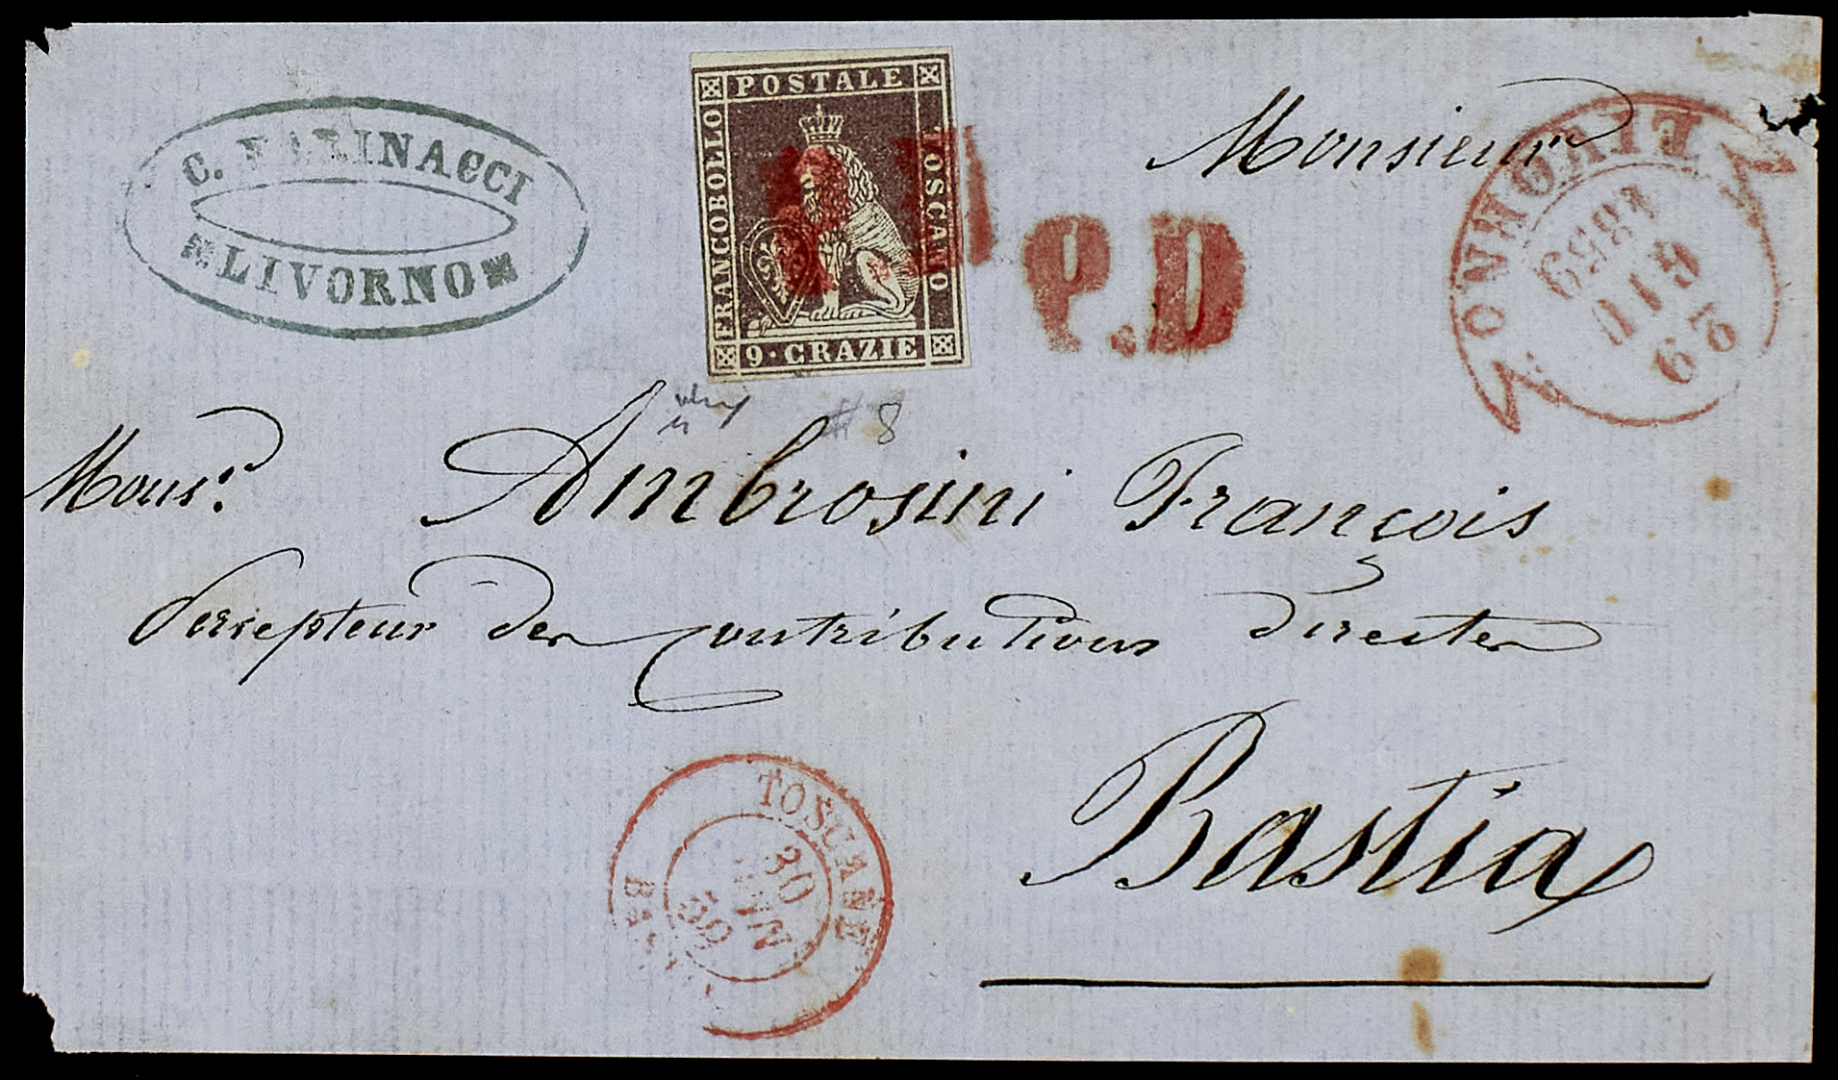 C. FARINACCI
LIVORNO
FRANCOBOLLO
POSTALE
TOSCANO
9 · CRAZIE
P.D
P.D
LIVORNO
29
GIU
1859
Monsieur
# 8
Mons.r Ambrosini François
Percepteur des Contributions directes
Bastia
TOSCANE
30
JUIN
59